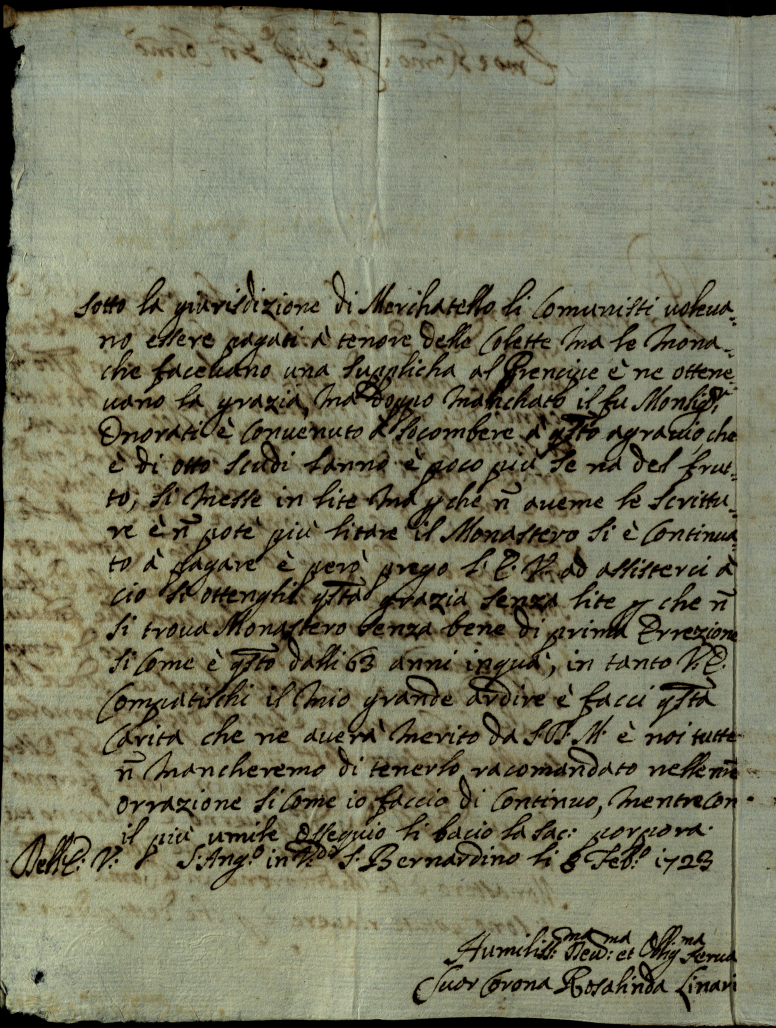 sotto la giurisdizione di Merchatello li Comunisti voleva=
no essere pagati à tenore delle Colette ma le Mona=
che facevano una supplicha al Prencipe è ne ottene=
vano la grazia, ma doppo Manchato il fu Monsig.r
Onorati è Convenuto à socombere à q̃sto agravio, che
è di otto scudi l'anno è poco più se nà del frut=
to, si messe in lite ma p che ñ averne le scrittu=
re è ñ potè più litare il Monastero si è Continua=
to à pagare è però prego l: E: V: ad assisterci à
ciò si ottenghi q̃sta grazia senza lite p che ñ
si trova Monastero senza bene di prima Errezione
si Come è q̃sto dalli 63 anni inquà, in tanto V: E:
Compatischi il Mio grande ardire è facci q̃sta
Carità che ne averà Merito da S: D: M: è noi tutte
ñ Mancheremo di tenerlo racomandato nelle ñre
orrazione si Come io faccio di Continuo, Mentre Con
il più umile Ossequio li bacio la Sac: porpora.
Dell'E: V: S: Ang.o in V.do S: Bernardino li 8 Feb.o 1723
Humiliss:ma Dev:ma et Obbig:ma Serva
Suor Corona Rosalinda Linari